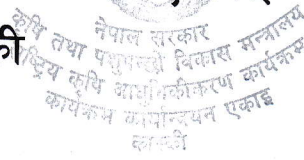 की
नेपाल सरकार
कृषि तथा पशुपन्छी विकास मन्त्रालय
कृषि आधुनिकीकरण कार्यक्रम
कार्यक्रम कार्यान्वयन एकाइ